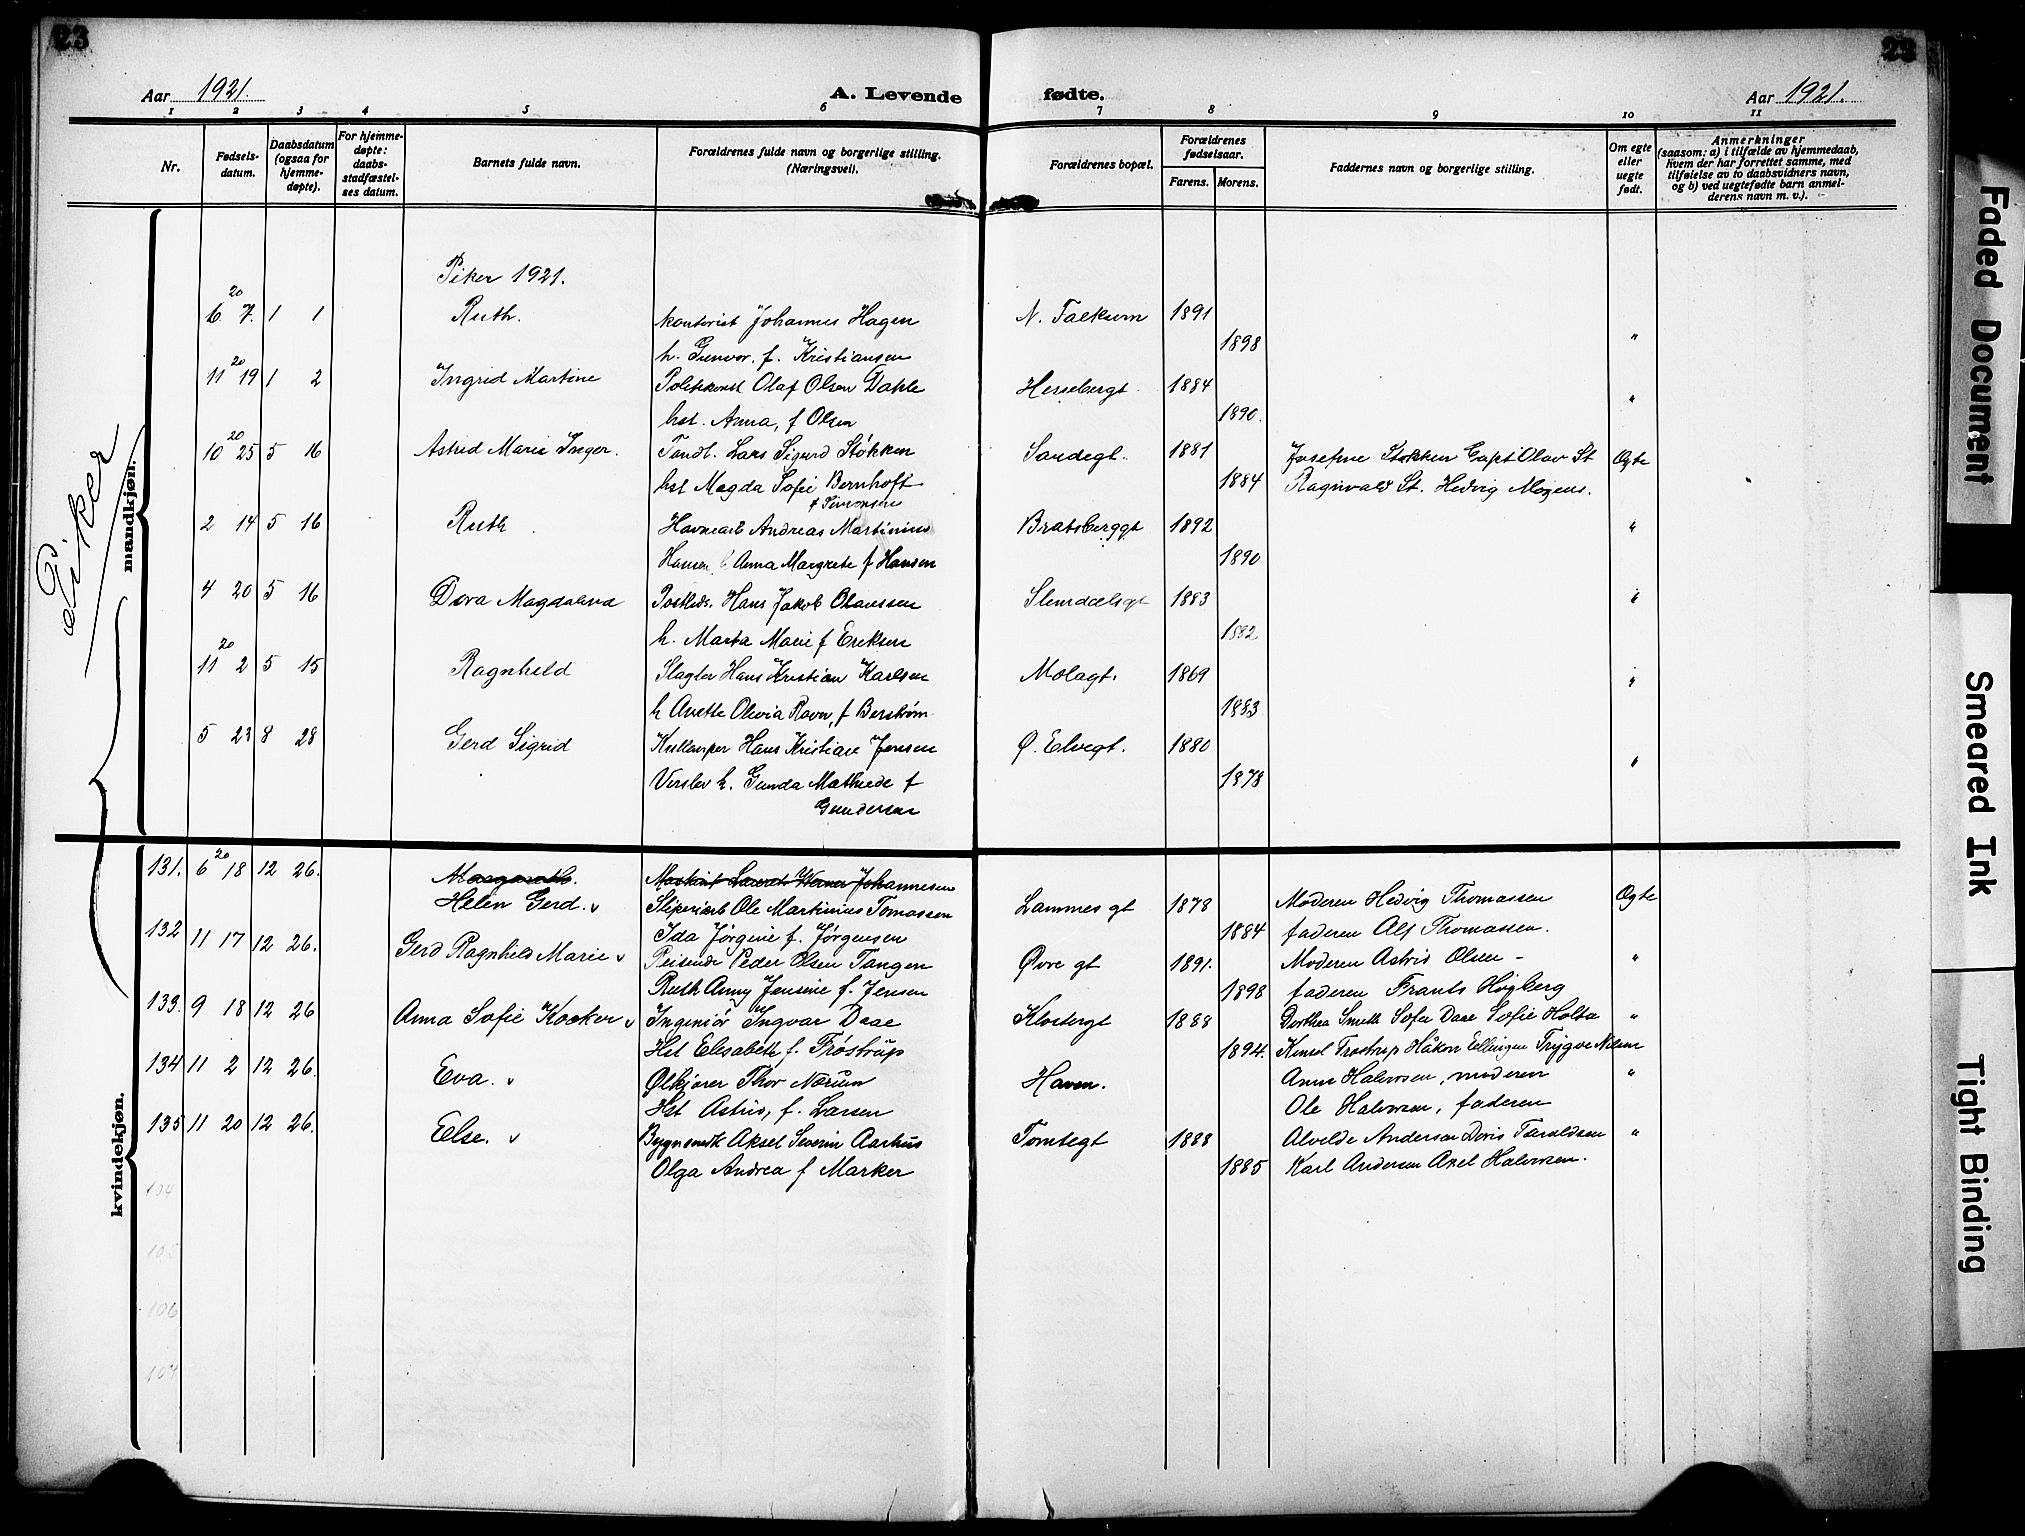 23
23
Aar 1921.
A. Levende fødte.
Aar 1921.
1 2 3 4 5 6 7 8 9 10 11
Nr.
Fødsels-
datum.
Daabsdatum
(ogsaa for
hjemme-
døpte).
For hjemme-
døpte:
daabs-
stadfæstel-
ses datum.
Barnets fulde navn.
Forældrenes fulde navn og borgerlige stilling.
(Næringsvei.)
Forældrenes bopæl.
Forældrenes
fødselsaar.
Farens. Morens.
Faddernes navn og borgerlige stilling.
Om egte
eller
uegte
født.
Anmerkninger
(saasom: a) i tilfælde av hjemmedaab,
hvem der har forrettet samme, med
tilføielse av to daabsvidners navn,
og b) ved uegtefødte barn anmel-
derens navn m. v.).
Piker
mandkjøn.
Piker 1921.
6 20 7. 1 1 Ruth. Kontorist Johannes Hagen N. Falkum 1891
h. Gunvor, f. Kristiansen 1898 "
11 20 19 1 2 Ingrid Martine Politikonst Olaf Olsen Dahle Hessebergt. 1884
hst. Anna, f Olsen 1890. "
10 20 25 5 16 Astrid Marie Inger. Tandl. Lars Sigurd Stökken Sandegt. 1881 Josefine Stokken Capt Olav St Ægte
hst Magda Sofie Bernhoft 1884 Ragnvald St. Hedvig Mogens.
f Simonsen
2 14 5 16 Ruth Havnearb Andreas Martinius Bratsberggt 1892 "
Hansen Anna Margrete f Hansen 1890
4 20 5 16 Dora Magdalena Postbds. Hans Jakob Olaussen Slemdalsgt 1883 "
h. Marta Marie f Eriksen 1882
11 20 2 5 15 Ragnhild Slagter Hans Kristian Karlsen Molagt. 1869 "
h Anette Olivia Ravn, f Berström 1883
5 23 8 28 Gerd Sigrid Hans Kristian Jensen Ø. Elvegt. 1880 "
h. Gunda Mathilde f 1878
Gundersen
kvindekjøn.
131. 6 20 18 12 26. Margareth. Laurits Werner Johannesen
Helen Gerd. v Sliperiarb Ole Martinius Tomassen Lammes gt 1878 Moderen Hedvig Thomassen Ægte
Ida Jørgine f. Jørgensen 1884 faderen Alf Thomassen.
132 11 17 12 26. Gerd Ragnhild Marie v Reisende Peder Olsen Tangen Øvre gt 1891. Moderen Astrid Olsen - "
Ruth Anny Jensine f. Jensen 1898 faderen Frants Høgberg
133. 9 18 12 26 Anna Sofie Kocker v Ingeniör Ingvar Daae Klostergt 1888 Dorthea Smith Sofie Daae Sofie Holta "
Hst Elisabeth f. Fröstrup 1894. Frostrup Håkon Ellingsen Trygve Nilsen
134 11 2 12 26. Eva. v Ølkjører Thor Nærum Haven. Anna Halvorsen, moderen "
Hst Astrid, f. Larsen Ole Halvorsen, faderen
135 11 20 12 26. Else. v Bygnsnedk Aksel Severin Aarhus Tomtegt 1888 Alvilde Andersen Doris Taraldsen "
Olga Andrea f Marker 1885 Karl Andersen Axel Halvorsen.
104
105
106
107
Faded Document
Smeared Ink
Tight Binding